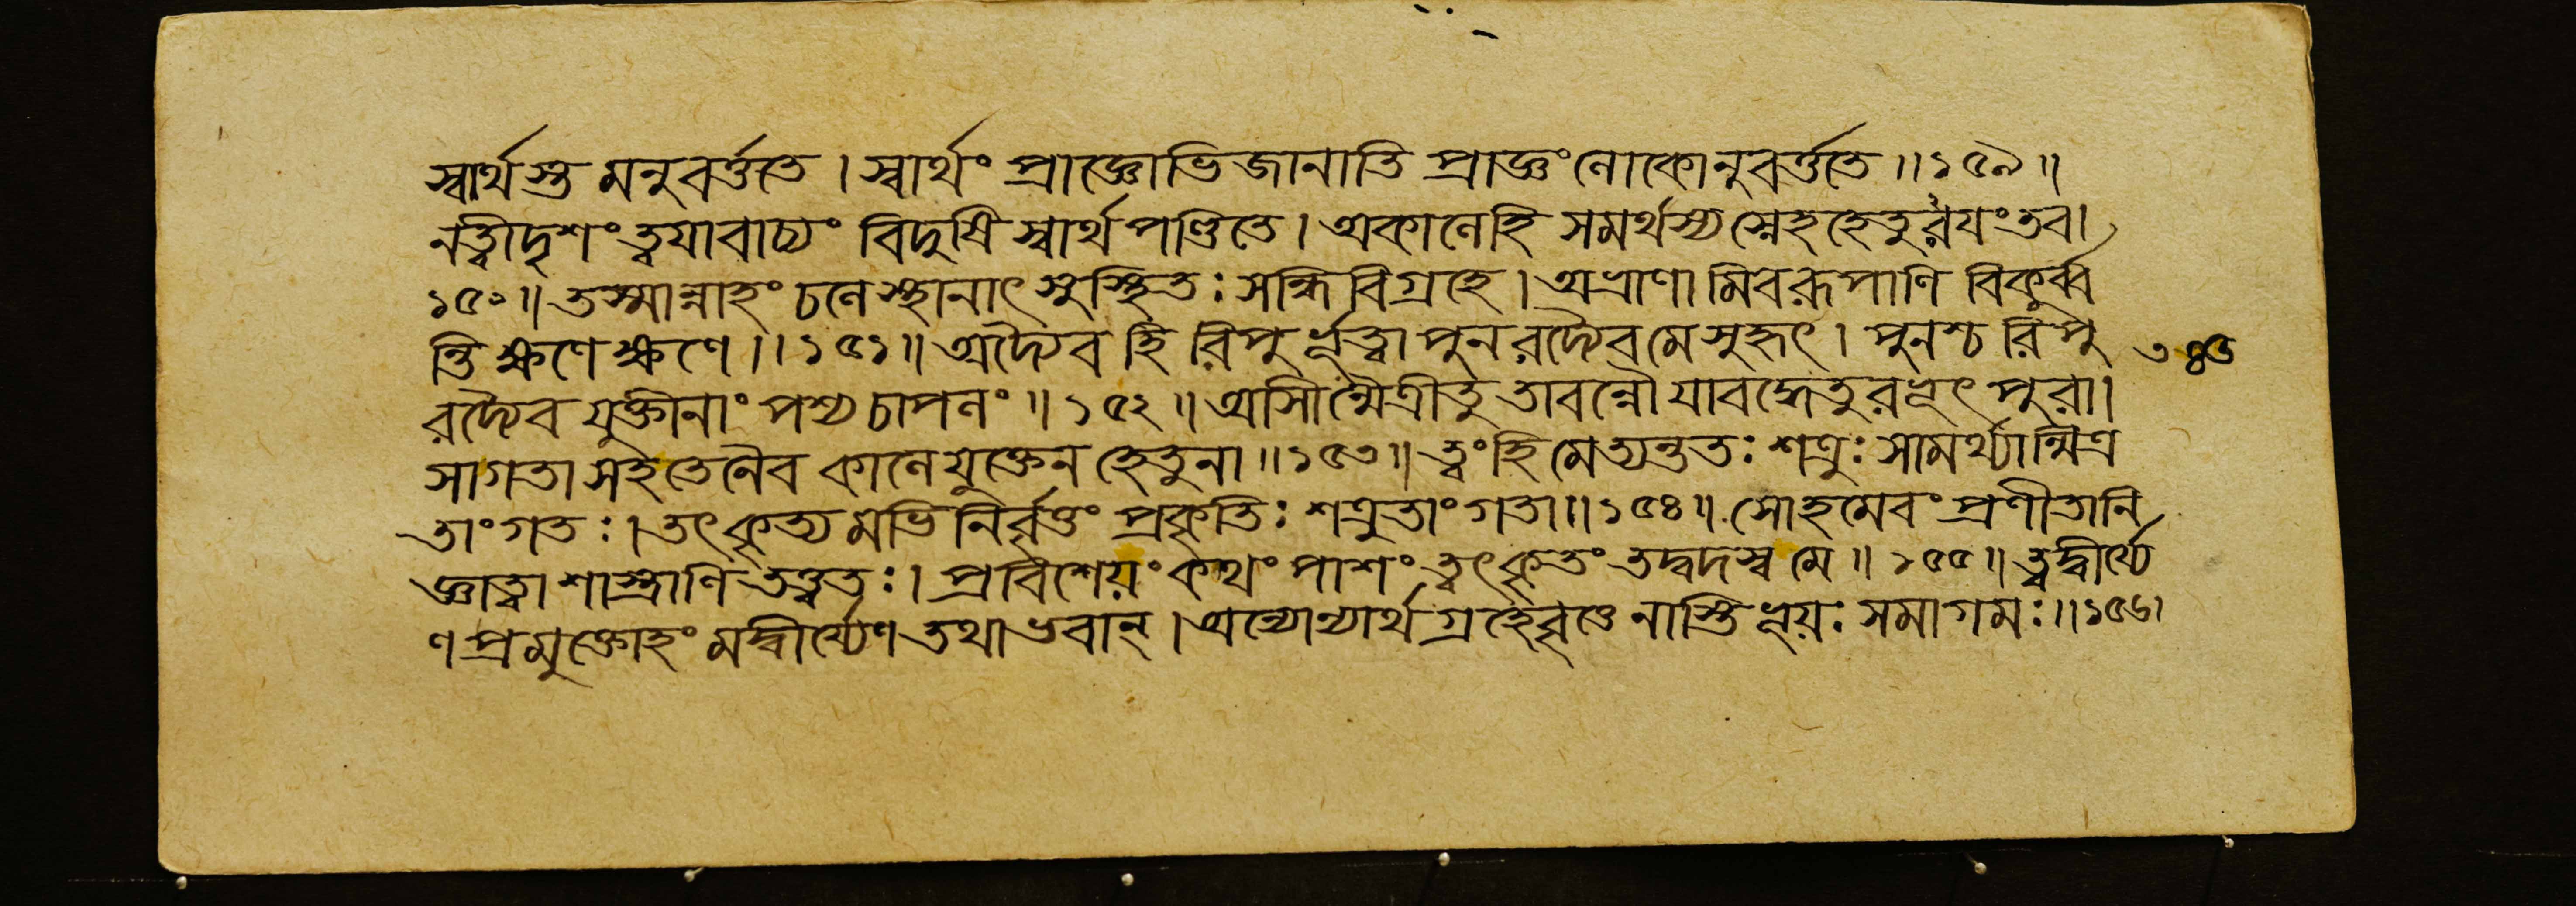 স্বার্থস্তু মনুবর্ত্ততে । স্বার্থং প্রাজ্ঞোভিজানাতি প্রাজ্ঞং লোকোনুবর্ত্ততে ॥ ১৫৯ ॥
নত্বীদৃশং ত্বয়াবাচ্যং বিদুষি স্বার্থপণ্ডিতে । অকালেহি সমর্থস্য স্নেহহেতুরয়ং তব ।
১৫০ ॥ তস্মান্নাহং চলে স্থানাৎ সুস্থিতঃ সন্ধিবিগ্রহে । অভ্রাণামিবরূপাণি বিকুর্ব্ব
ন্তি ক্ষণে ক্ষণে ॥ ১৫১ ॥ অদ্যৈব হি রিপুর্ভূত্বা পুনরদ্যৈবমে সুহৃৎ । পুনশ্চ রিপু
রদ্যৈব যুক্তীনাং পশ্য চাপলং ॥ ১৫২ ॥ আসীন্মৈত্রীতু তাবন্নৌ যাবদ্ধেতুরভূৎ পুরা ।
সাগতা সহ তেনৈব কালেযুক্তেন হেতুনা ॥ ১৫৩ ॥ ত্বং হি মেত্যন্ততঃ শত্রুঃ সামর্থ্যান্মিত্র
তাং গতঃ । তৎ কৃত্যমভিনির্বৃত্তং প্রকৃতিঃ শত্রুতাং গতা ॥ ১৫৪ ॥ সোহমেবং প্রণীতানি
জ্ঞাত্বা শাস্ত্রাণি তত্ত্বতঃ । প্রবিশেয়ং কথং পাশং ত্বৎকৃতং তদ্বদস্ব মে ॥ ১৫৫ ॥ ত্বদ্বীর্য্যে
ণ প্রমুক্তোহং মদ্বীর্য্যেণ তথা ভবান্ । অন্যোন্যার্থগ্রহেবৃত্তে নাস্তি ভূয়ঃ সমাগমঃ ॥ ১৫৬ ।